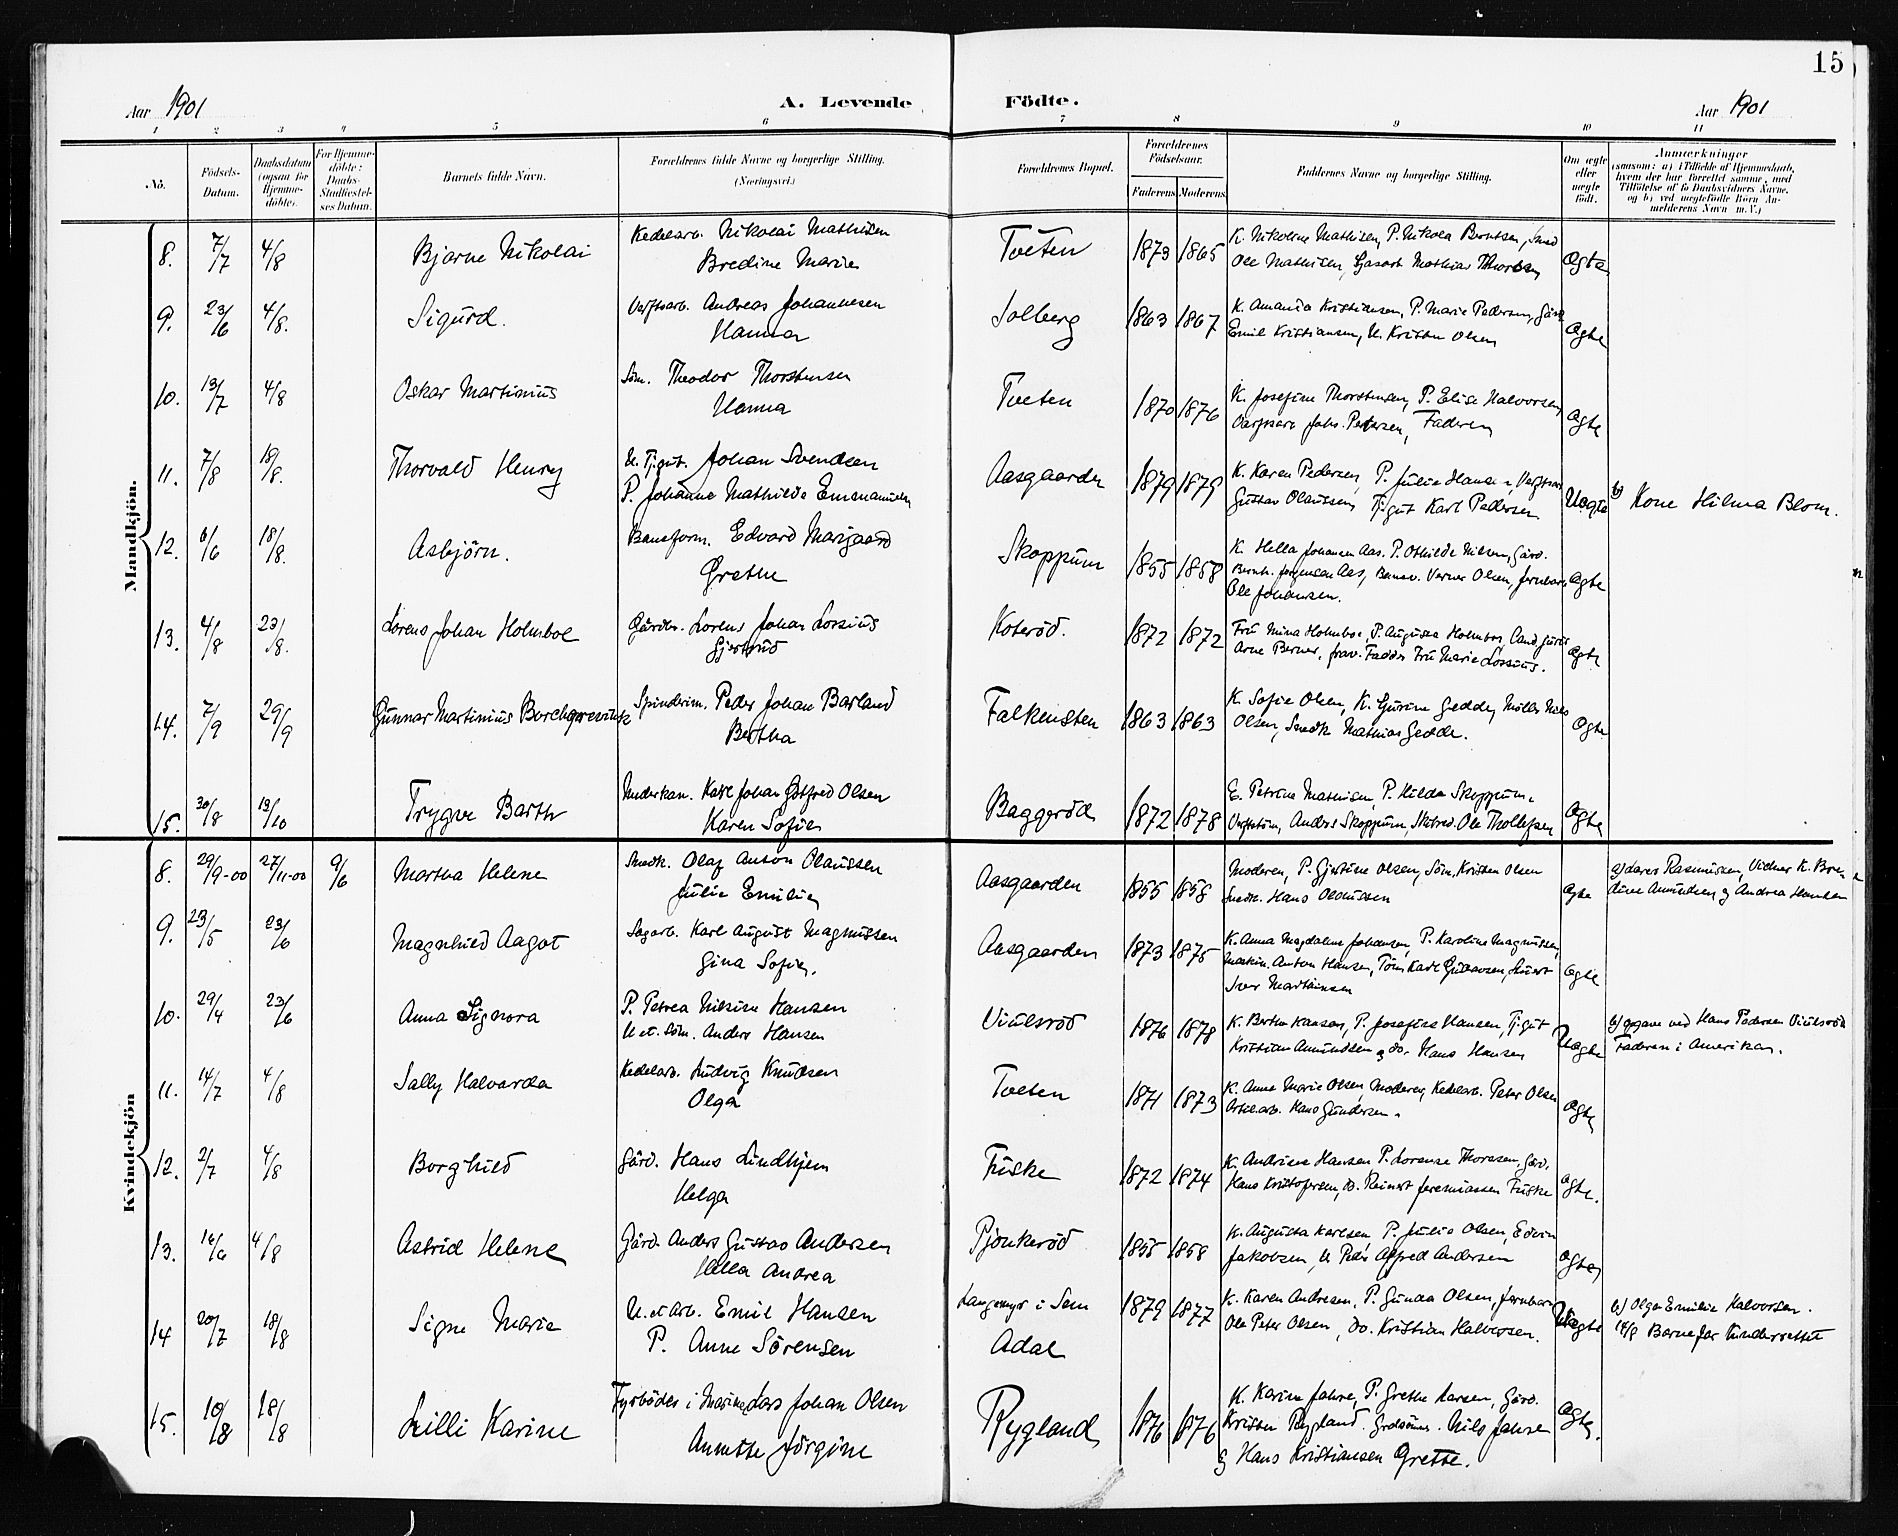 15
Aar 1901 A. Levende Födte. Aar 1901
1 2 3 4 5 6 7 8 9 10 11
No. Födsels-Datum. Daabsdatum (ogsaa for Hjemme-döbte). For Hjemme-döbte: Daabs-Stadfæstel-ses Datum. Barnets fulde Navn. Forældrenes fulde Navne og borgerlige Stilling. (Næringsvei.) Forældrenes Bopæl. Forældrenes Födselsaar. Faderens Moderens Faddernes Navne og borgerlige Stilling. Om ægte eller uægte födt. Anmærkninger (saasom: a) i Tilfælde af Hjemmedaab, hvem der har forrettet samme, med Tilföielse af to Daabsvidners Navne, og b) ved uægtefödte Börn An-melderens Navn m. V.)
Mandkjön.
8. 7/7 4/8 Bjarne Nikolai Kedelarb. Nikolai Mathisen Tveten 1873 1865 K. Nikoline Mathisen, P. Nikolea Berntsen, Smed
Bredine Marie Ole Mathisen, Mathias Thorsen Ægte
9. 23/6 4/8. Sigurd. Verftsarb. Andreas Johannesen Solberg 1863 1867 K. Amanda Kristiansen, P. Marie Pedersen, Gård.
Hanna Emil Kristiansen, U. Kristen Olsen Ægte
10. 13/7 4/8 Oskar Martinius Söm. Theodor Thorstensen Tveten 1870 1876 K. Josefine Thorstensen, P. Elise Halvorsen,
Hanna Johs. Petersen, Faderen Ægte
11. 7/8 18/8. Thorvald Henry U. Tjgut. Johan Svendsen Aasgaarden 1879 1879 K. Karen Pedersen, P. Julie Hansen, Verftsarb
P. Johanne Mathilde Emanuelsen Gustav Olaussen, Tjgut Karl Pedersen Uægte b) Kone Hilma Blom.
12. 6/6 18/8. Asbjörn. Baneform. Edvard Marsgaard Skoppum 1855 1858 K. Hella Johansen Aas. P. Othilde Nilsen, Gård.
Grethe Bernh. Jörgensen Aas, Banev. Verner Olsen, Jernbarb
Ole Johansen. Ægte
13. 4/8 23/8. Lorens Johan Holmboe Gårdbr. Lorens Johan Lossius Koteröd. 1872 1872 Fru Mina Holmboe, P. Augusta Holmboe, Cand. juris
Gjertrud Arne Berner, frav. Fadder Fru Marie Lossius. Ægte
14. 7/9 29/9 Gunnar Martinius Borchgrevink Spinderim. Peder Johan Barland Falkensten 1863 1863 K. Sofie Olsen, K. Gurine Gedde, Möller Nils
Bertha Olsen, Snedk. Mathias Gedde. Ægte
15. 30/8 13/10 Trygve Barth Karl Johan Gotfred Olsen Baggeröd 1872 1878 E. Petrine Mathisen, P. Hilda Skoppum,
Karen Sofie Anders Skoppum, Ole Thollefsen Ægte
Kvindekjön
8. 29/9-00 27/11-00 9/6 Martha Helene Snedk. Olaf Anton Olaussen Aasgaarden 1855 1858 Moderen, P. Gjertine Olsen, Söm. Kristen Olsen a) Lars Rasmussen, Vidner K. Bre-
Julie Emilie Snedk. Hans Olaussen Ægte dine Amundsen og Andrea Hansen
9. 23/5 23/6 Magnhild Aagot Sagarb. Karl August Magnussen Aasgaarden 1873 1875 K. Anna Magdalene Johansen, P. Karoline Magnussen,
Gina Sofie. Maskin. Anton Hansen, Töm. Karl Gustavsen,
Iver Martinsen Ægte
10. 29/4 23/6 Anna Signora P. Petrea Nilsine Hansen Viulsröd 1876 1878 K. Berthe Hansen, P. Josefine Hansen, Tjgut b) opgave ved Hans Pedersen Viulsröd
U. et. Söm. Anders Hansen Kristian Amundsen og do. Hans Hansen Uægte Faderen i Amerika.
11. 14/7 4/8 Sally Halvarda Kedelarb. Ludvig Knudsen Tveten 1871 1873 K. Anne Marie Olsen, Moderen, Kedelarb. Peter Olsen
Olga Hans Gundersen. Ægte
12. 2/7 4/8 Borghild Gård. Hans Lindhjem Fuske 1872 1874 K. Andrine Hansen, P. Lorense Thoresen, Gård.
Helga Hans Kristofersen, do. Reinert Jeremiassen Fuske Ægte.
13. 16/6 4/8 Astrid Helene Gård. Anders Gustav Andersen Pjonkeröd 1855 1858 K. Augusta Karlsen, P. Julie Olsen, Edvin
Hella Andrea Jakobsen, U. Peder Alfred Andersen Ægte
14 20/7 18/8 Signe Marie U. et Arb. Emil Hansen Langemyr i Sem 1879 1877 K. Karen Andresen, P. Gunda Olsen, Jernbarb b) Olga Emilie Halvorsen.
P. Anne Sörensen Adal Ole Peter Olsen, do. Kristian Halvorsen. Uægte 14/9 Barnefar
15. 10/8 18/8 Lilli Karine Fyrböder i Marinen Lars Johan Olsen Rygland 1876 1876 K. Karine Jahre, P. Grethe Larsen, Gård.
Annette Jörgine Kristen Rygland. Grdsönn. Nils Jahre
& Hans Kristiansen Grette. Ægte.